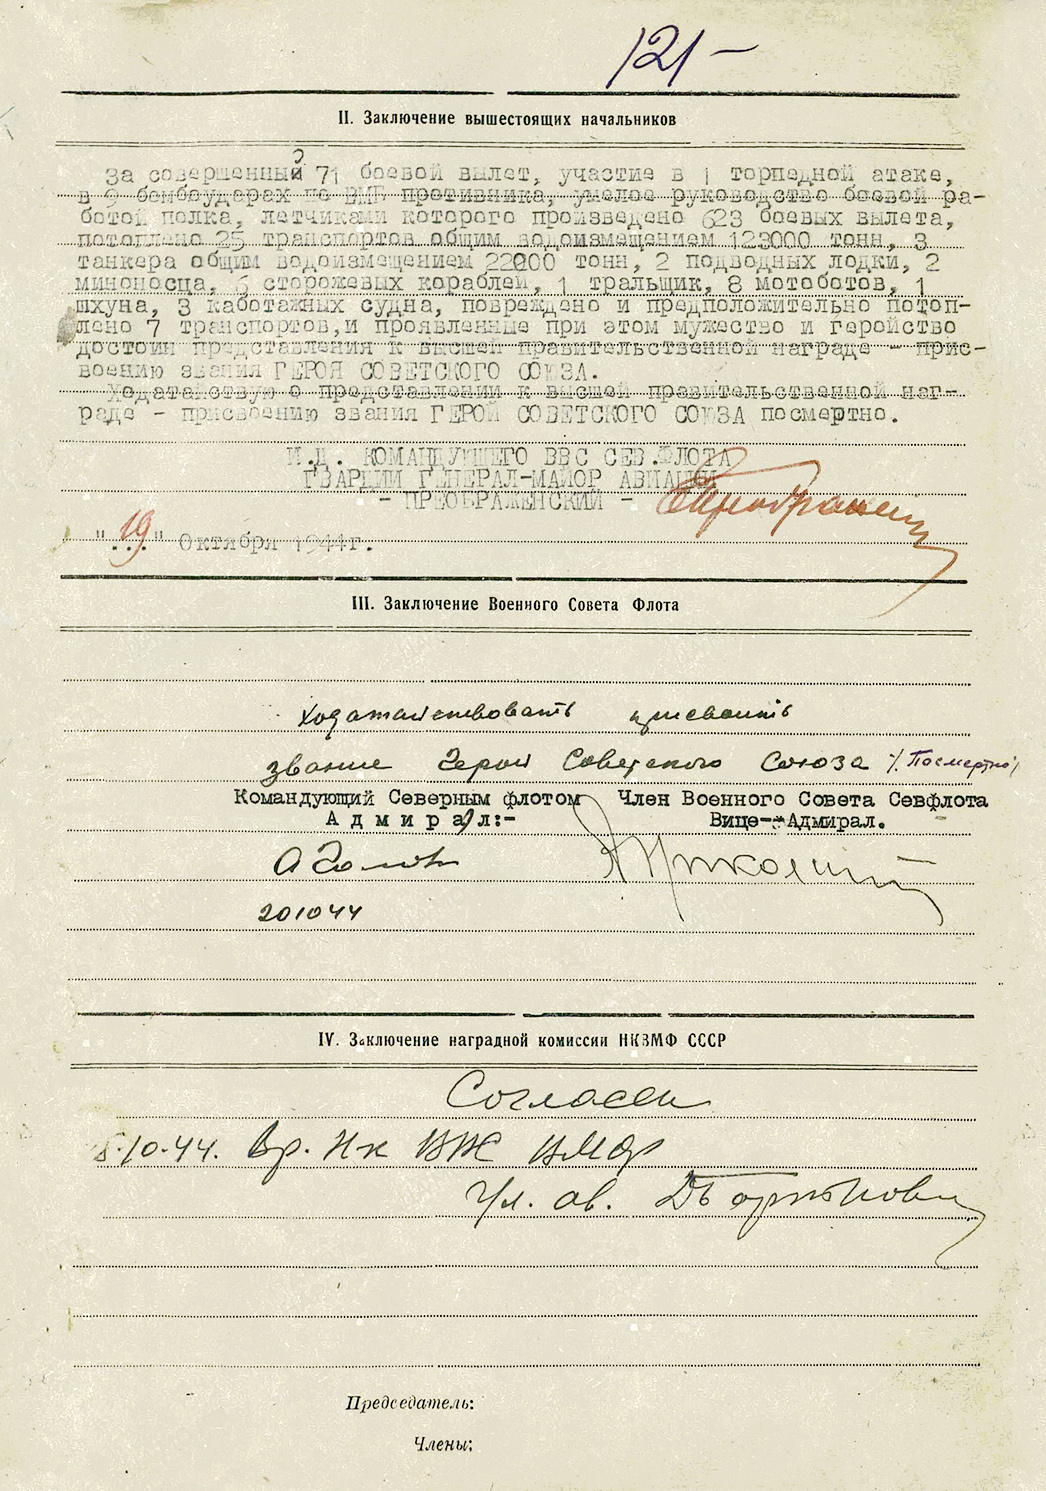 121-
II. Заключение вышестоящих начальников
За совершенный 71 боевой вылет, участие в 1 торпедной атаке,
в 9 бомбоударах по ВМБ противника, умелое руководство боевой ра-
ботой полка, летчиками которого произведено 623 боевых вылета,
потоплено 25 транспортов общим водоизмещением 123000 тонн, 3
танкера общим водоизмещением 22000 тонн, 2 подводных лодки, 2
миноносца, 6 сторожевых кораблей, 1 тральщик, 8 мотоботов, 1
шхуна, 3 каботажных судна, повреждено и предположительно потоп-
лено 7 транспортов, и проявленные при этом мужество и геройство
достоин представления к высшей правительственной награде - прис-
воению звания ГЕРОЯ СОВЕТСКОГО СОЮЗА.
Ходатайствую о представлении к высшей правительственной наг-
раде - присвоению звания ГЕРОЙ СОВЕТСКОГО СОЮЗА посмертно.
И.Д. КОМАНДУЮЩЕГО ВВС СЕВ.ФЛОТА
ГВАРДИИ ГЕНЕРАЛ-МАЙОР АВИАЦИИ
- ПРЕОБРАЖЕНСКИЙ -
"19" Октября 1944г.
III. Заключение Военного Совета Флота
Ходатайствовать присвоить
звание Героя Советского Союза /Посмертно/
Командующий Северным флотом Член Военного Совета Севфлота
Адмирал:- Вице-Адмирал.
20 10 44
IV. Заключение наградной комиссии НКВМФ СССР
Согласен
10.44. Вр. Нк ВМФ